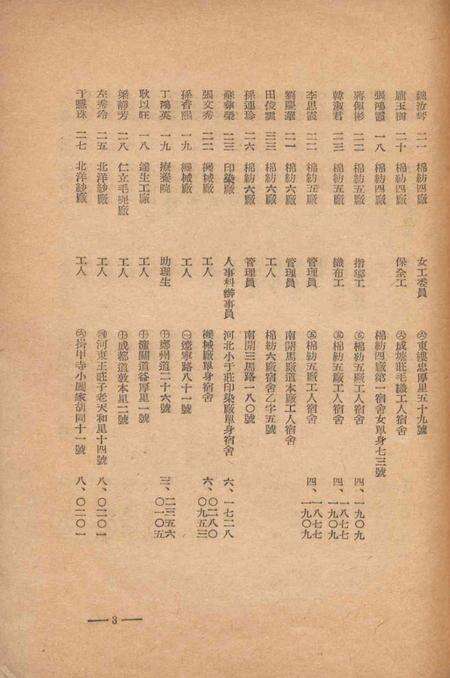 二一 棉紡四廠 女工委員 東樓忠厚里五十九號
二十 棉紡四廠 保全工 成林莊毛織工人宿舍
張鴻霞 一八 棉紡四廠 棉紡四廠第一宿舍女單身七三號
二二 棉紡五廠 指導工 棉紡五廠工人宿舍 四、一九〇九
韓淑君 二三 棉紡五廠 織布工 棉紡五廠工人宿舍 四、一八七七 一九〇九
李思霞 二二 棉紡五廠 管理員 棉紡五廠工人宿舍 四、一八七七 一九〇九
劉慶華 二一 棉紡六廠 管理員 南開馬廠道六廠工人宿舍
田俊霞 二三 棉紡六廠 工人 棉紡六廠宿舍乙字五號
孫連玲 二六 棉紡六廠 管理員 南開三馬路一八〇號
二三 印染廠 人事科辦事員 河北小于莊印染廠單身宿舍 六、一七二八
張文秀 二二 機械廠 工人 機械廠單身宿舍 六、〇二八〇 〇九五三
孫香熙 一九 機械廠 工人 遼寧路八十一號
丁鴻英 一九 療養院 助理生 鄭州道二十六號 三、二三五六 〇一〇五
耿以旺 一八 達生工廠 工人 潼關道谷厚里一號
梁靜芳 二八 仁立毛呢廠 工人 成都道敦本里二號
左秀培 二五 北洋紗廠 工人 河東王莊子老天和里十四號 八、〇二〇一
于鳳珠 二七 北洋紗廠 工人 掛甲寺小周家胡同十一號 八、〇二〇一
— 3 —